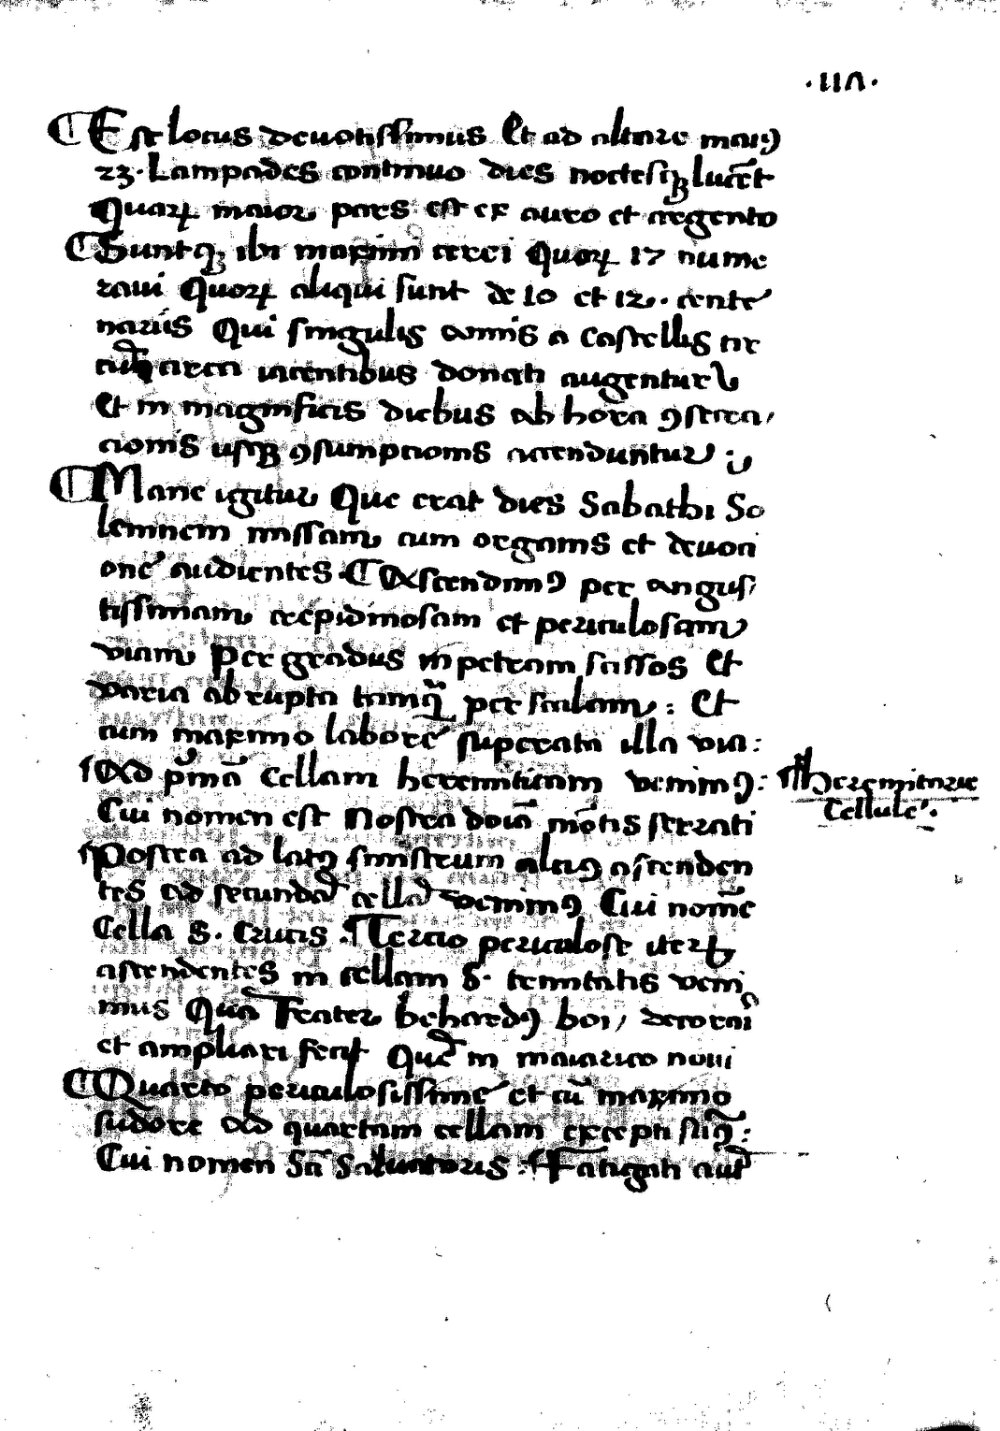 ·117·
¶ Est locus devotissimus Et ad altare maiꝯ
23· Lampades continuo dies noctesqꝫ lucēt
Quaꝝ maior pars est ex auro et argento
¶ Suntqꝫ ibi maximi cerei Quoꝝ 17 nume
ravi Quoꝝ aliqui sunt de 10 et 12·· cente
nariis Qui singulis annis a Castellis cir
iacentibus donati augentur
Et in magnificis diebus ab hora ꝯsecra/
cionis usqꝫ ꝯsumpcionis accenduntur :
¶ Mane igitur Que erat dies Sabathi So
lemnem missam cum organis et devoci
onē audientes · ¶ Ascendimꝯ per angus/
tissimam crepidinosam et periculosam
viam Per gradus in petram fassos Et
varia abrupta tamq̄ per scalam : Et
cum maximo laborē superata illa via :
Ad pⁱmā Cellam heremiticam venimꝯ :
Heremitarie
Cellule ·
Cui nomen est Nostra dōia mōtis serrati
Postea ad latꝯ sinistrum alciꝯ ascenden
tes ad secundā cellā venimꝯ Cui nomē
Cella S. Crucis · Tercio periculose iterꝫ
ascendentes in cellam S. trinitatis veni
mus Quā Frater behardꝯ boi / decorai
et ampliari fecit Quē in maiarico novi
¶ Quarto periculosissimē et cū maximo
sudore ad quartam cellam excepti sumꝯ :
Cui nomen Sā Salvatoris · Fatigati aut̄